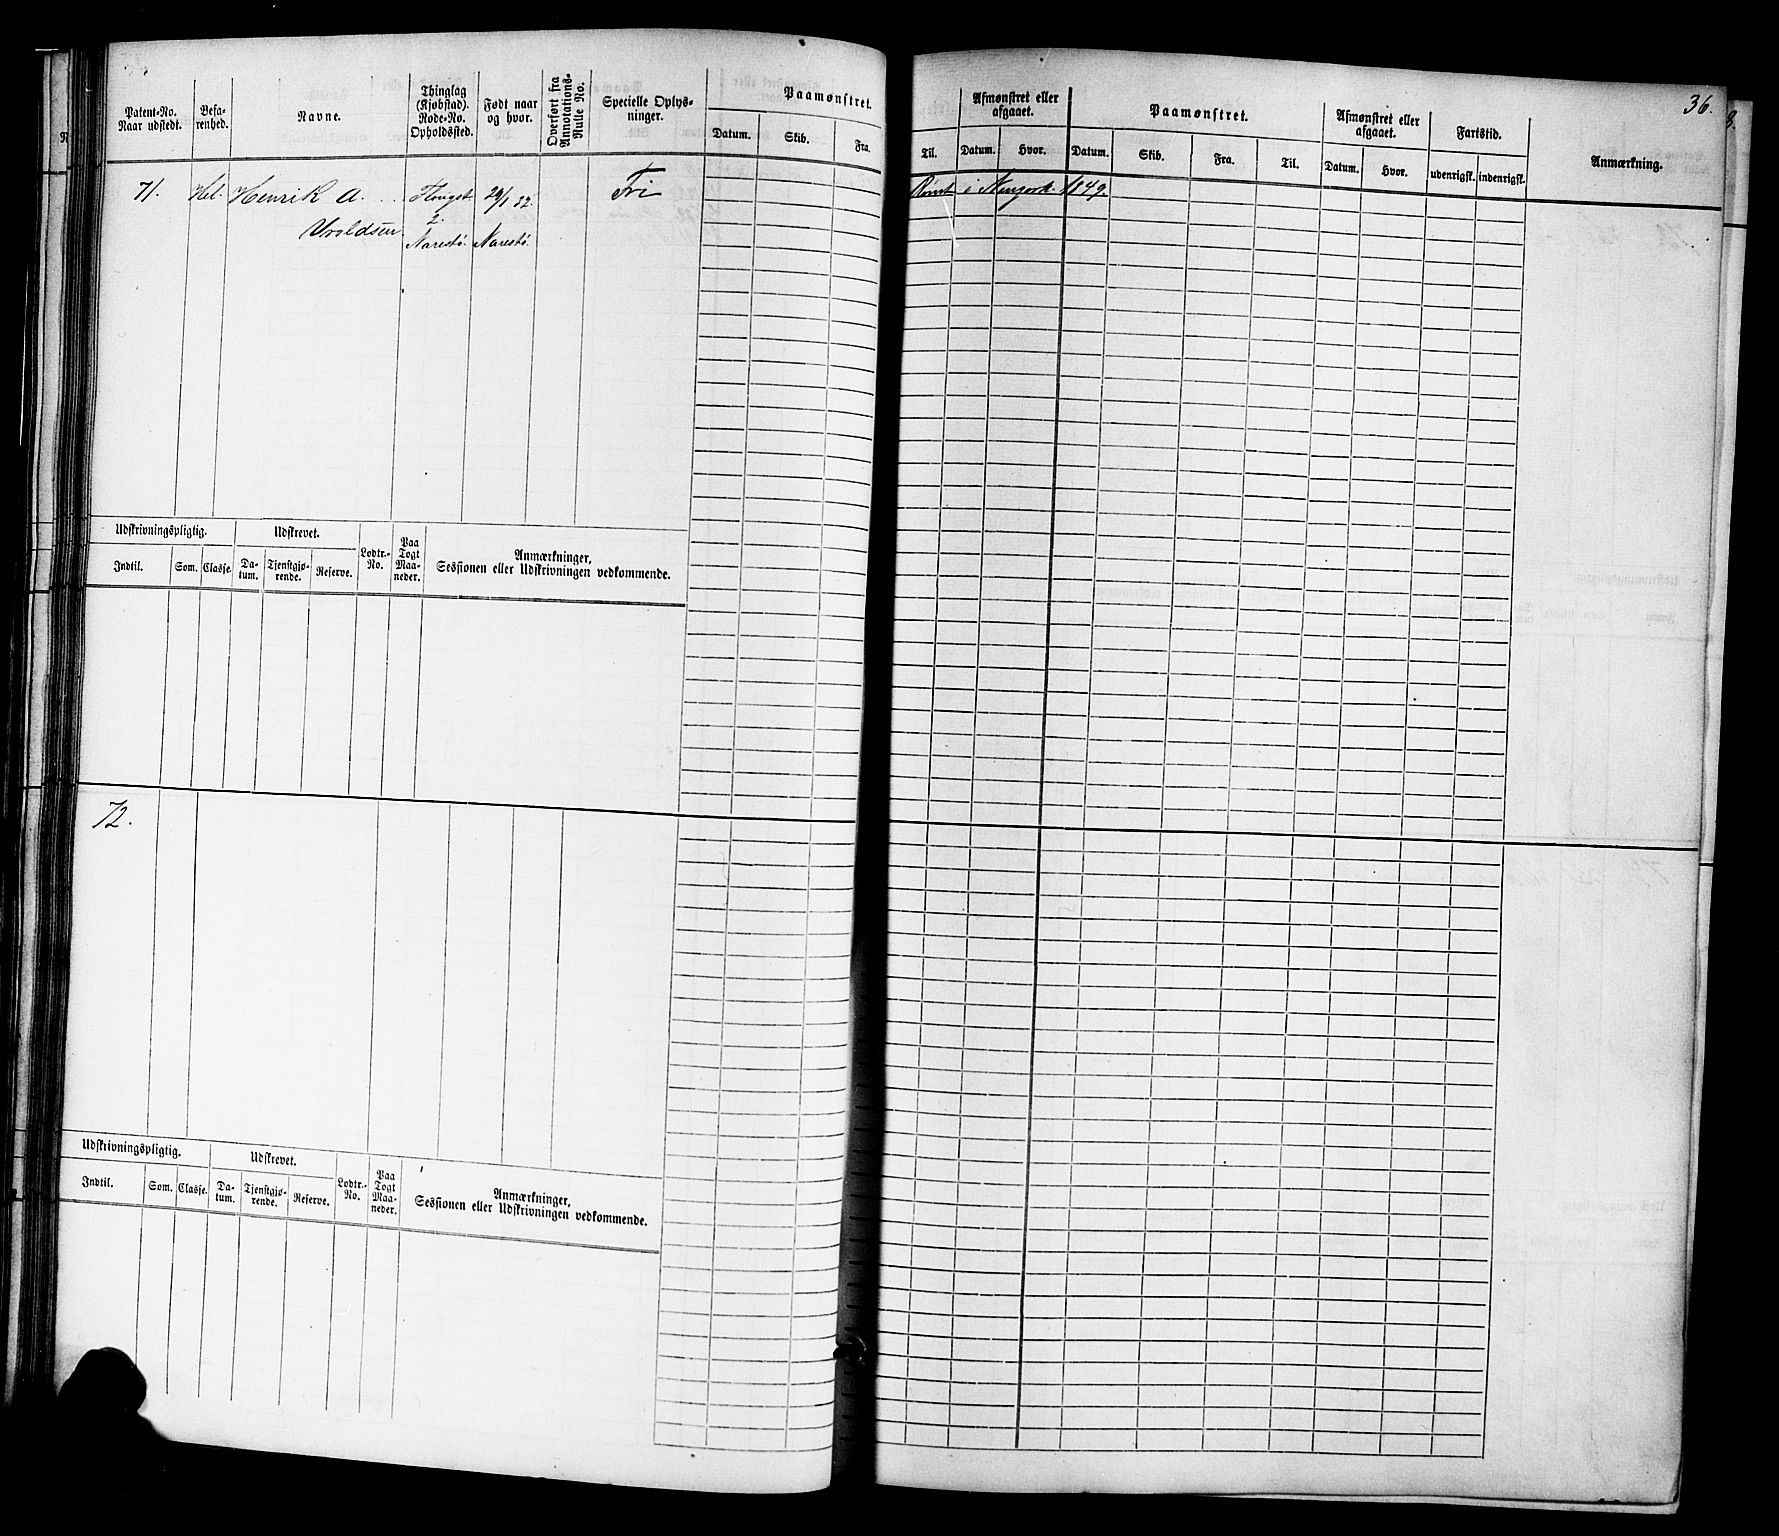 36.
Patent-No. Naar udstedt.
Befa-renhed.
Navne.
Thinglag (Kjøbstad). Rode-No. Opholdssted.
Født naar og hvor.
Overført fra Annotations-Rulle No.
Specielle Oplys-ninger.
Paamønstret.
Datum. Skib. Fra.
Til.
Afmønstret eller afgaaet.
Datum. Hvor.
Paamønstret.
Datum. Skib. Fra. Til.
Afmønstret eller afgaaet.
Datum. Hvor.
Fartstid.
udenrigsk. indenrigsk.
Anmærkning.
71. Hel. Henrik A. Flougst 29/1 32. Fri Rømt i Newyork 1849.
2.
Uvoldsen Narestø. Narestø.
Udskrivningspligtig. Udskrevet. Lodtr.-No. Paa Togt Maa-neder. Anmærkninger, Sessionen eller Udskrivningen vedkommende.
Indtil. Som. Classe. Da-tum. Tjenstgjø-rende. Reserve.
72.
Udskrivningspligtig. Udskrevet. Lodtr.-No. Paa Togt Maa-neder. Anmærkninger, Sessionen eller Udskrivningen vedkommende.
Indtil. Som. Classe. Da-tum. Tjenstgjø-rende. Reserve.